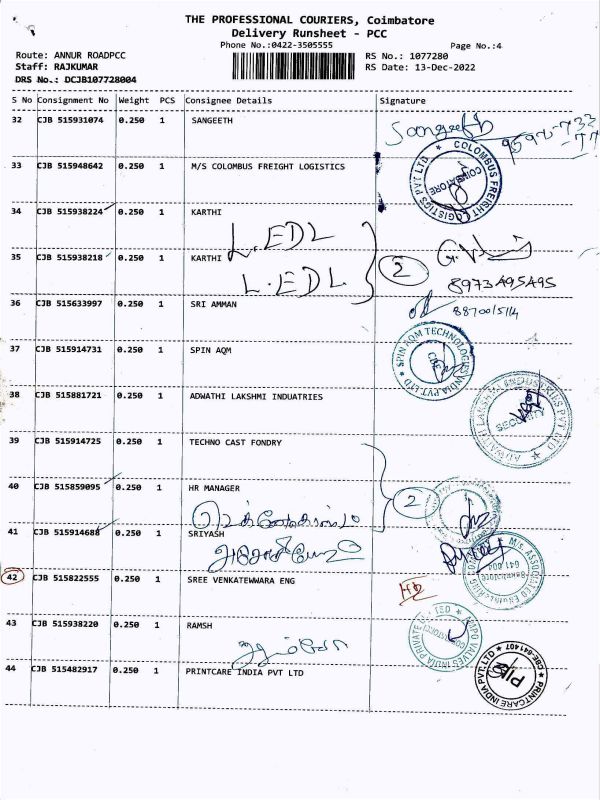 THE PROFESSIONAL COURIERS, Coimbatore
Delivery Runsheet - PCC
Phone No.:0422-3505555
Page No.:4
Route: ANNUR ROADPCC
RS No.: 1077280
Staff: RAJKUMAR
RS Date: 13-Dec-2022
DRS No.: DCJB107728004
S No Consignment No Weight PCS Consignee Details Signature
32 CJB 515931074 0.250 1 SANGEETH
Sangeeth
33 CJB 515948642 0.250 1 M/S COLOMBUS FREIGHT LOGISTICS
COLOMBUS FREIGHT LOGISTICS PVT LTD
COIMBATORE
34 CJB 515938224 0.250 1 KARTHI
L.EDL
35 CJB 515938218 0.250 1 KARTHI
L.EDL
2
8973495495
36 CJB 515633997 0.250 1 SRI AMMAN
37 CJB 515914731 0.250 1 SPIN AQM
SPIN AQM TECHNOLOGIES INDIA PVT LTD
CBE
38 CJB 515881721 0.250 1 ADWATHI LAKSHMI INDUATRIES
ADWAITH LAKSHMI INDUSTRIES PVT LTD
SECURITY
39 CJB 515914725 0.250 1 TECHNO CAST FONDRY
40 CJB 515859095 0.250 1 HR MANAGER
2
41 CJB 515914688 0.250 1 SRIYASH
M/s. ASSOCIATED
42 CJB 515822555 0.250 1 SREE VENKATEWWARA ENG
43 CJB 515938220 0.250 1 RAMSH
AMPO VALVES INDIA PRIVATE LIMITED
44 CJB 515482917 0.250 1 PRINTCARE INDIA PVT LTD
PRINTCARE INDIA PVT LTD
CBE-641407